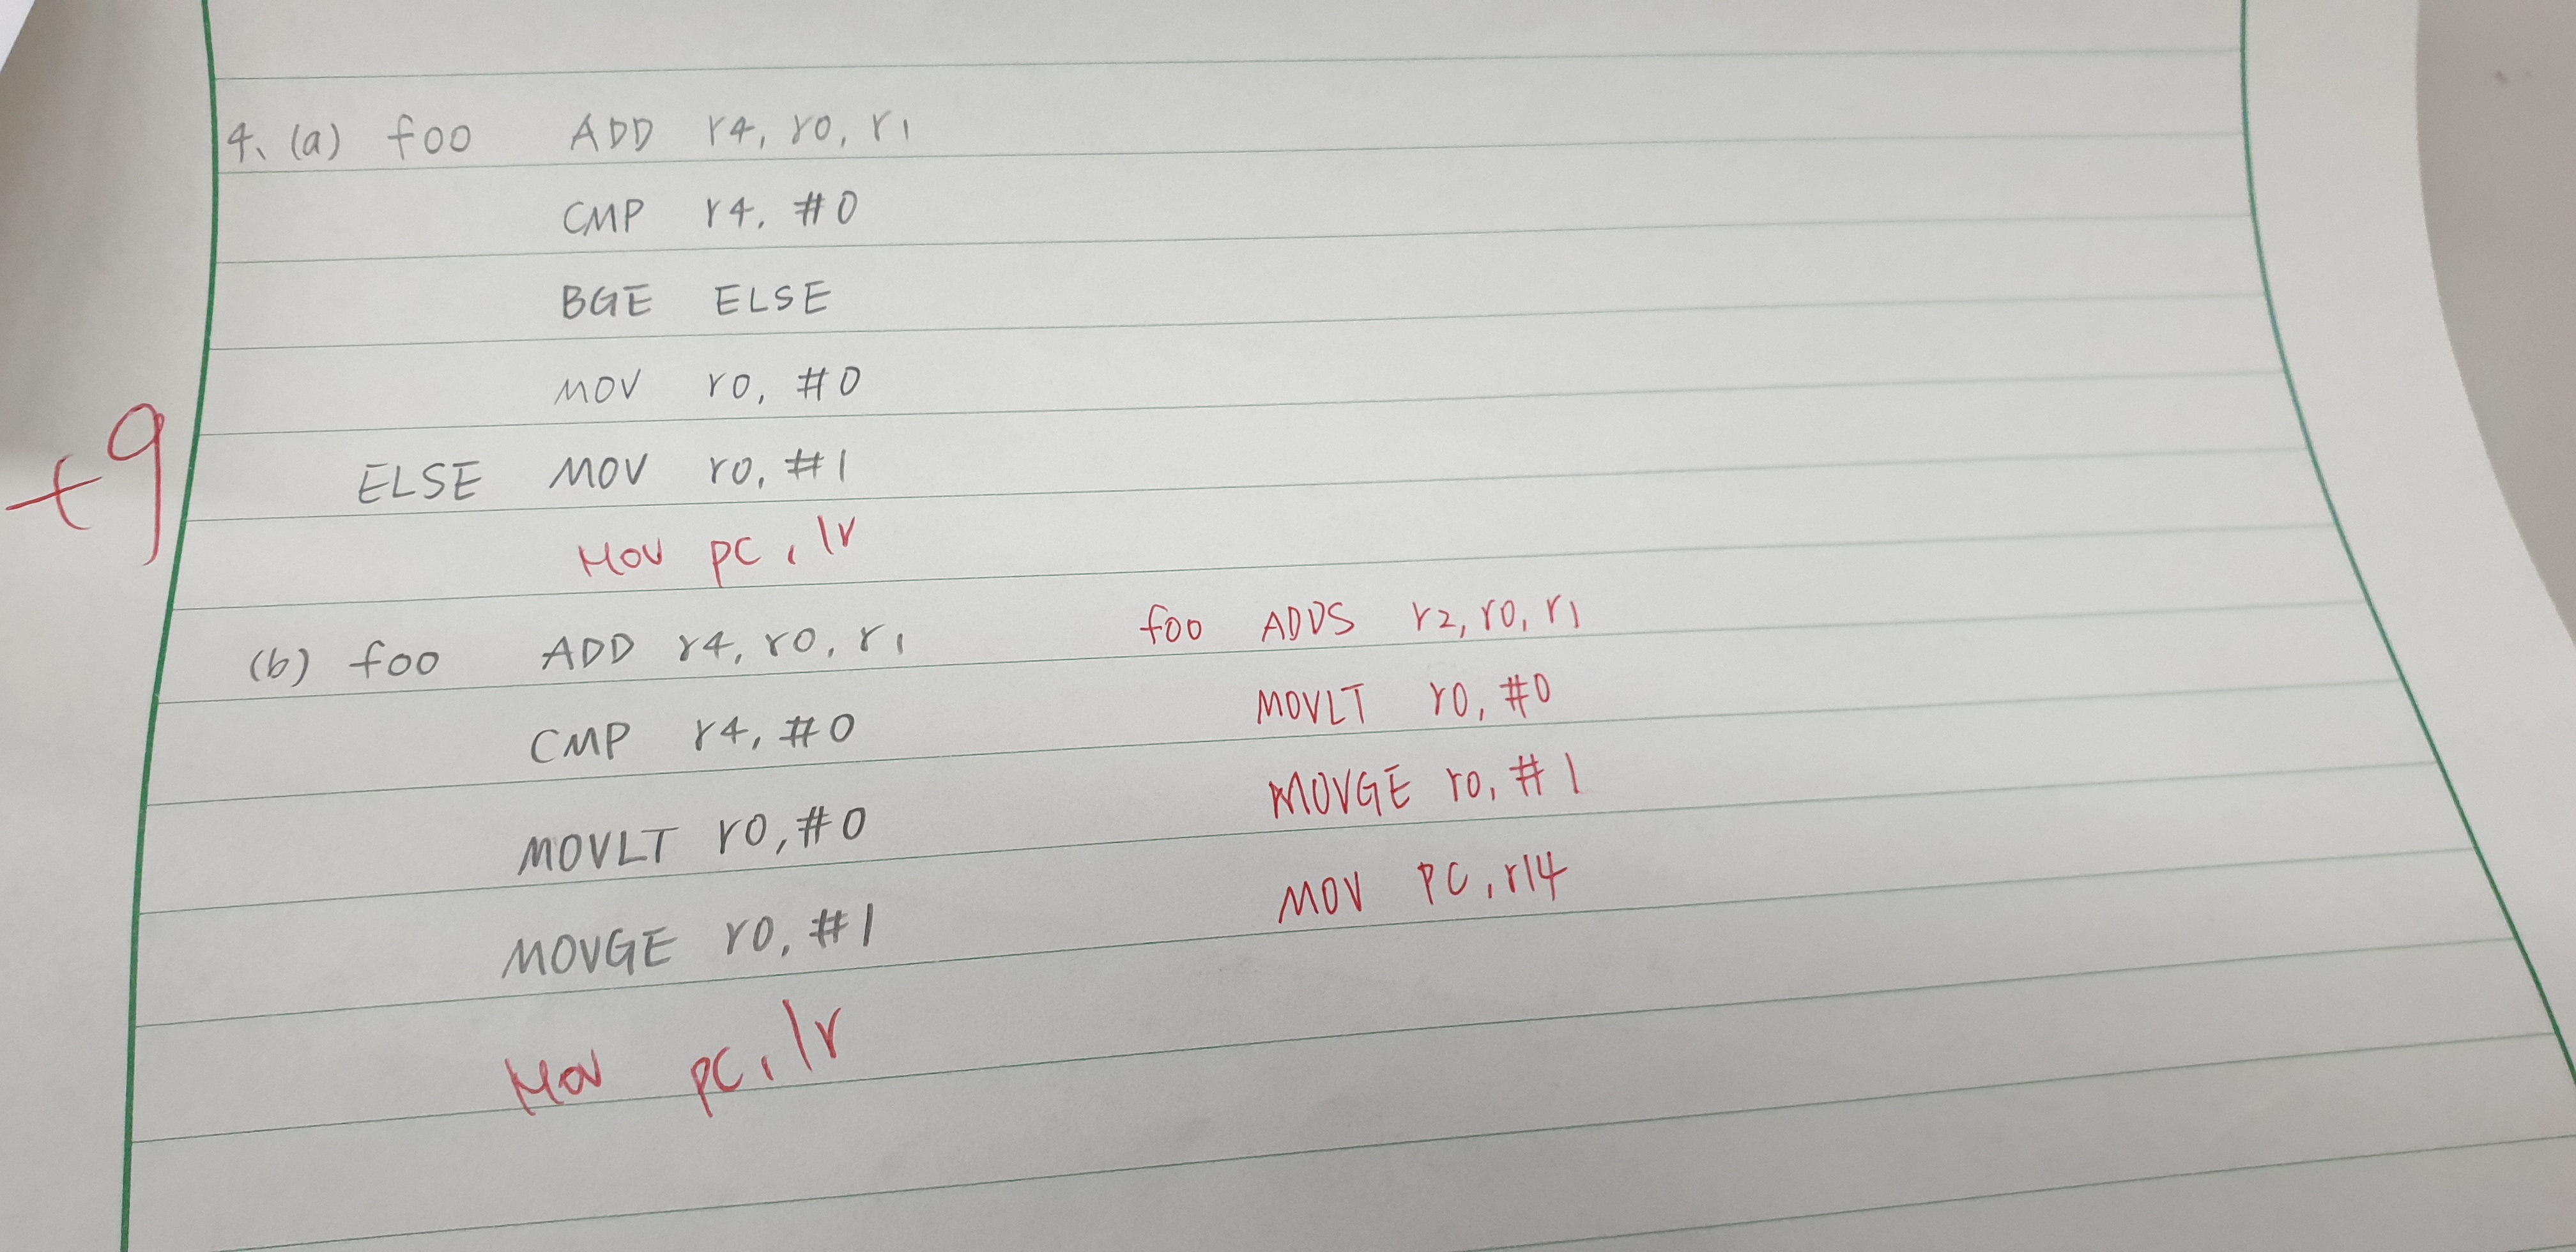 4、(a) foo ADD r4, r0, r1
CMP r4, #0
BGE ELSE
MOV r0, #0
+9
ELSE MOV r0, #1
Mov pc, lr
(b) foo ADD r4, r0, r1
CMP r4, #0
MOVLT r0, #0
MOVGE r0, #1
Mov pc, lr
foo ADDS r2, r0, r1
MOVLT r0, #0
MOVGE r0, #1
MOV PC, r14